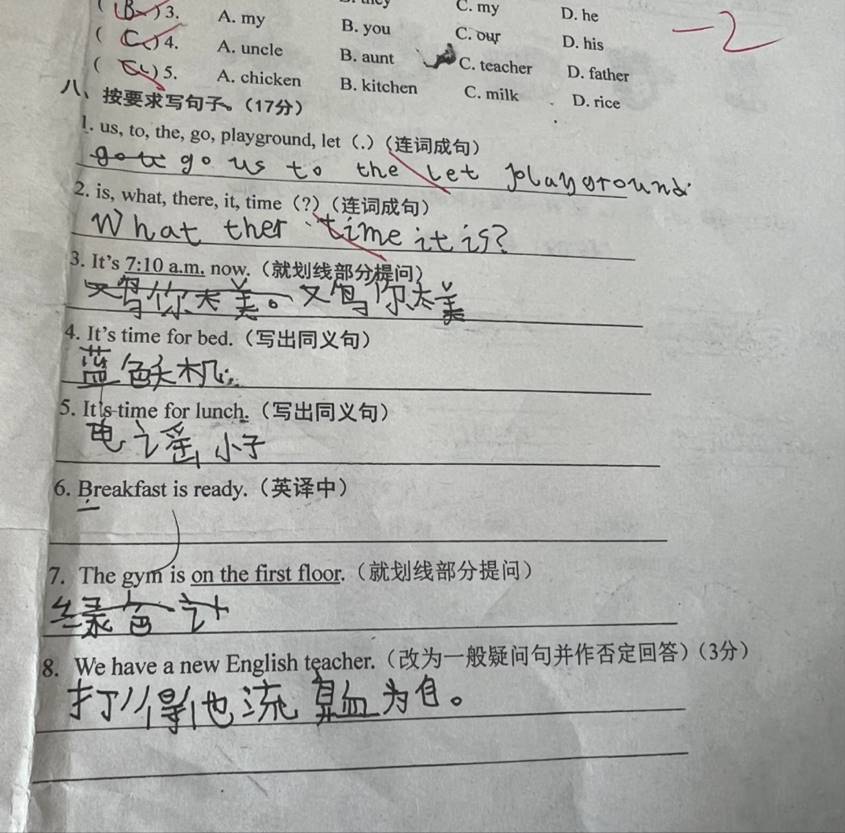 (B) 3. A. my B. you C. my D. he
(C) 4. A. uncle B. aunt C. our D. his
( ) 5. A. chicken B. kitchen C. teacher D. father
C. milk D. rice
-2
八、按要求写句子。(17分)
1. us, to, the, go, playground, let (.)(连词成句)
go us to the Let playground.
2. is, what, there, it, time (?)(连词成句)
What ther time it is?
3. It's 7:10 a.m. now.(就划线部分提问)
又鸟你太美。又鸟你太美
4. It's time for bed.(写出同义句)
蓝色妖机
5. It's time for lunch.(写出同义句)
电 谣小子
6. Breakfast is ready.(英译中)
7. The gym is on the first floor.(就划线部分提问)
绿色
8. We have a new English teacher.(改为一般疑问句并作否定回答)(3分)
打得他流鼻血为自。